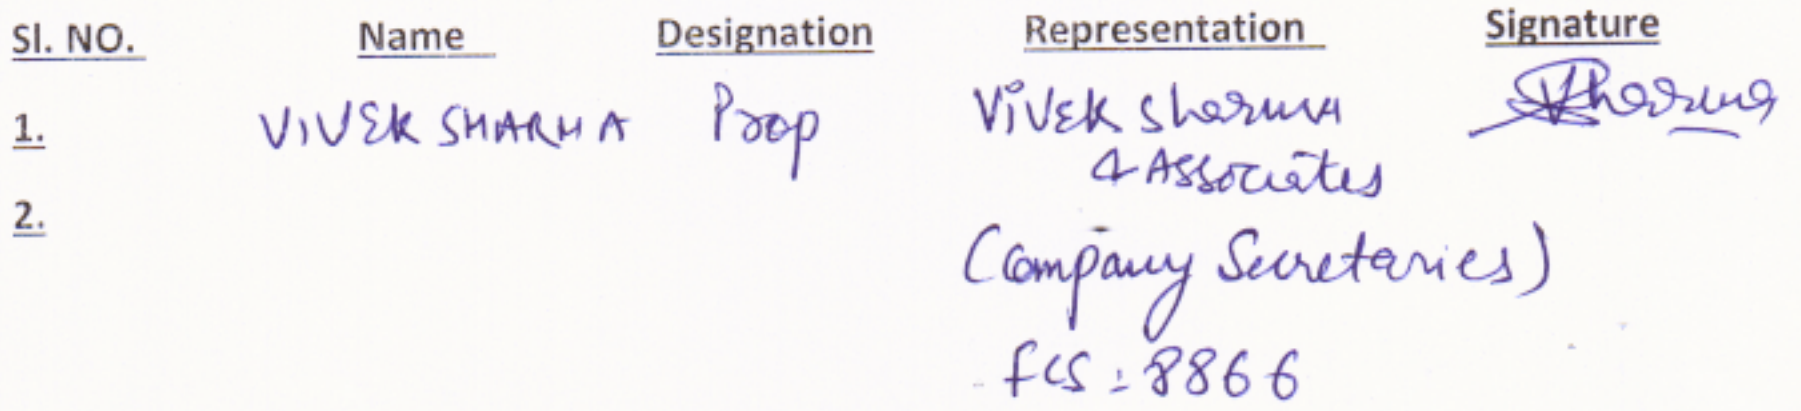 Sl. NO. Name Designation Representation Signature
1. VIVEK SHARMA Prop Vivek Sharma Sharma
& Associates
2.
(Company Secretaries)
fcs : 8866